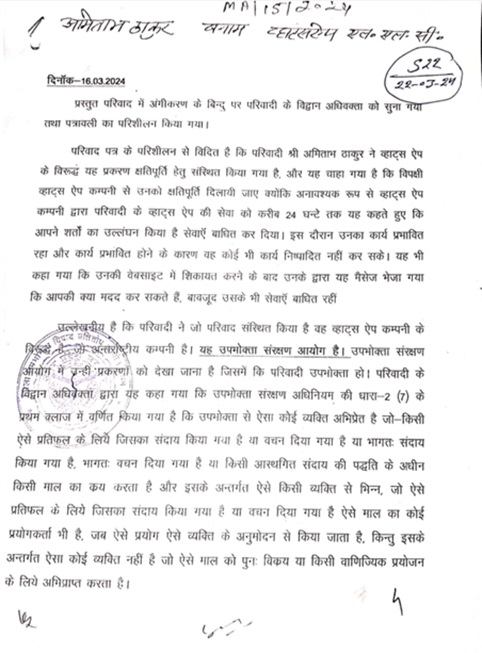 MA/15/2024
1 अमिताभ ठाकुर बनाम व्हाट्सऐप एल० एल० सी०
S22
22-03-24
दिनाँक-16.03.2024
प्रस्तुत परिवाद में अंगीकरण के बिन्दु पर परिवादी के विद्वान अधिवक्ता को सुना गया
तथा पत्रावली का परिशीलन किया गया।
परिवाद पत्र के परिशीलन से विदित है कि परिवादी श्री अमिताभ ठाकुर ने व्हाट्स ऐप
के विरूद्ध यह प्रकरण क्षतिपूर्ति हेतु संस्थित किया गया है, और यह चाहा गया है कि विपक्षी
व्हाट्स ऐप कम्पनी से उनको क्षतिपूर्ति दिलायी जाए क्योंकि अनावश्यक रूप से व्हाट्स ऐप
कम्पनी द्वारा परिवादी के व्हाट्स ऐप की सेवा को करीब 24 घन्टे तक यह कहते हुए कि
आपने शर्तो का उल्लंघन किया है सेवाऍ बाधित कर दिया। इस दौरान उनका कार्य प्रभावित
रहा और कार्य प्रभावित होने के कारण वह कोई भी कार्य निष्पादित नहीं कर सके। यह भी
कहा गया कि उनकी वेबसाइट में शिकायत करने के बाद उनके द्वारा यह मैसेज भेजा गया
कि आपकी क्या मदद कर सकते हैं, बावजूद उसके भी सेवाऍ बाधित रहीं
उल्लेखनीय है कि परिवादी ने जो परिवाद संस्थित किया है वह व्हाट्स ऐप कम्पनी के
विरूद्ध है, जो अन्तर्राष्ट्रीय कम्पनी है। यह उपभोक्ता संरक्षण आयोग है। उपभोक्ता संरक्षण
आयोग में उन्हीं प्रकरणों को देखा जाना है जिसमें कि परिवादी उपभोक्ता हो। परिवादी के
विद्वान अधिवक्ता द्वारा यह कहा गया कि उपभोक्ता संरक्षण अधिनियम की धारा-2 (7) के
प्रथम क्लाज में वर्णित किया गया है कि उपभोक्ता से ऐसा कोई व्यक्ति अभिप्रेत है जो-किसी
ऐसे प्रतिफल के लिये जिसका संदाय किया गया है या वचन दिया गया है या भागतः संदाय
किया गया है, भागतः वचन दिया गया है या किसी आस्थगित संदाय की पद्धति के अधीन
किसी माल का कय करता है और इसके अन्तर्गत ऐसे किसी व्यक्ति से भिन्न, जो ऐसे
प्रतिफल के लिये जिसका संदाय किया गया है या वचन दिया गया है ऐसे माल का कोई
प्रयोगकर्ता भी है, जब ऐसे प्रयोग ऐसे व्यक्ति के अनुमोदन से किया जाता है, किन्तु इसके
अन्तर्गत ऐसा कोई व्यक्ति नहीं है जो ऐसे माल को पुनः विकय या किसी वाणिज्यिक प्रयोजन
के लिये अभिप्राप्त करता है।